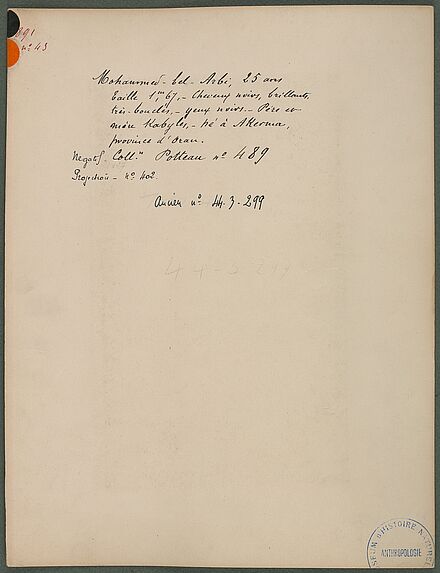 891
nº 43
Mohammed-bel-Arbi, 25 ans
taille 1,m67, - Cheveux noirs, brillants,
très-bouclés, - yeux noirs. - Père et
mère Kabyles, - né à Akerma,
province d'Oran.
Négatif. Coll.on Potteau nº 489
Projection - nº 402
Ancien nº 44.3.299
44-3-299
MUSEUM D'HISTOIRE NATURELLE
ANTHROPOLOGIE